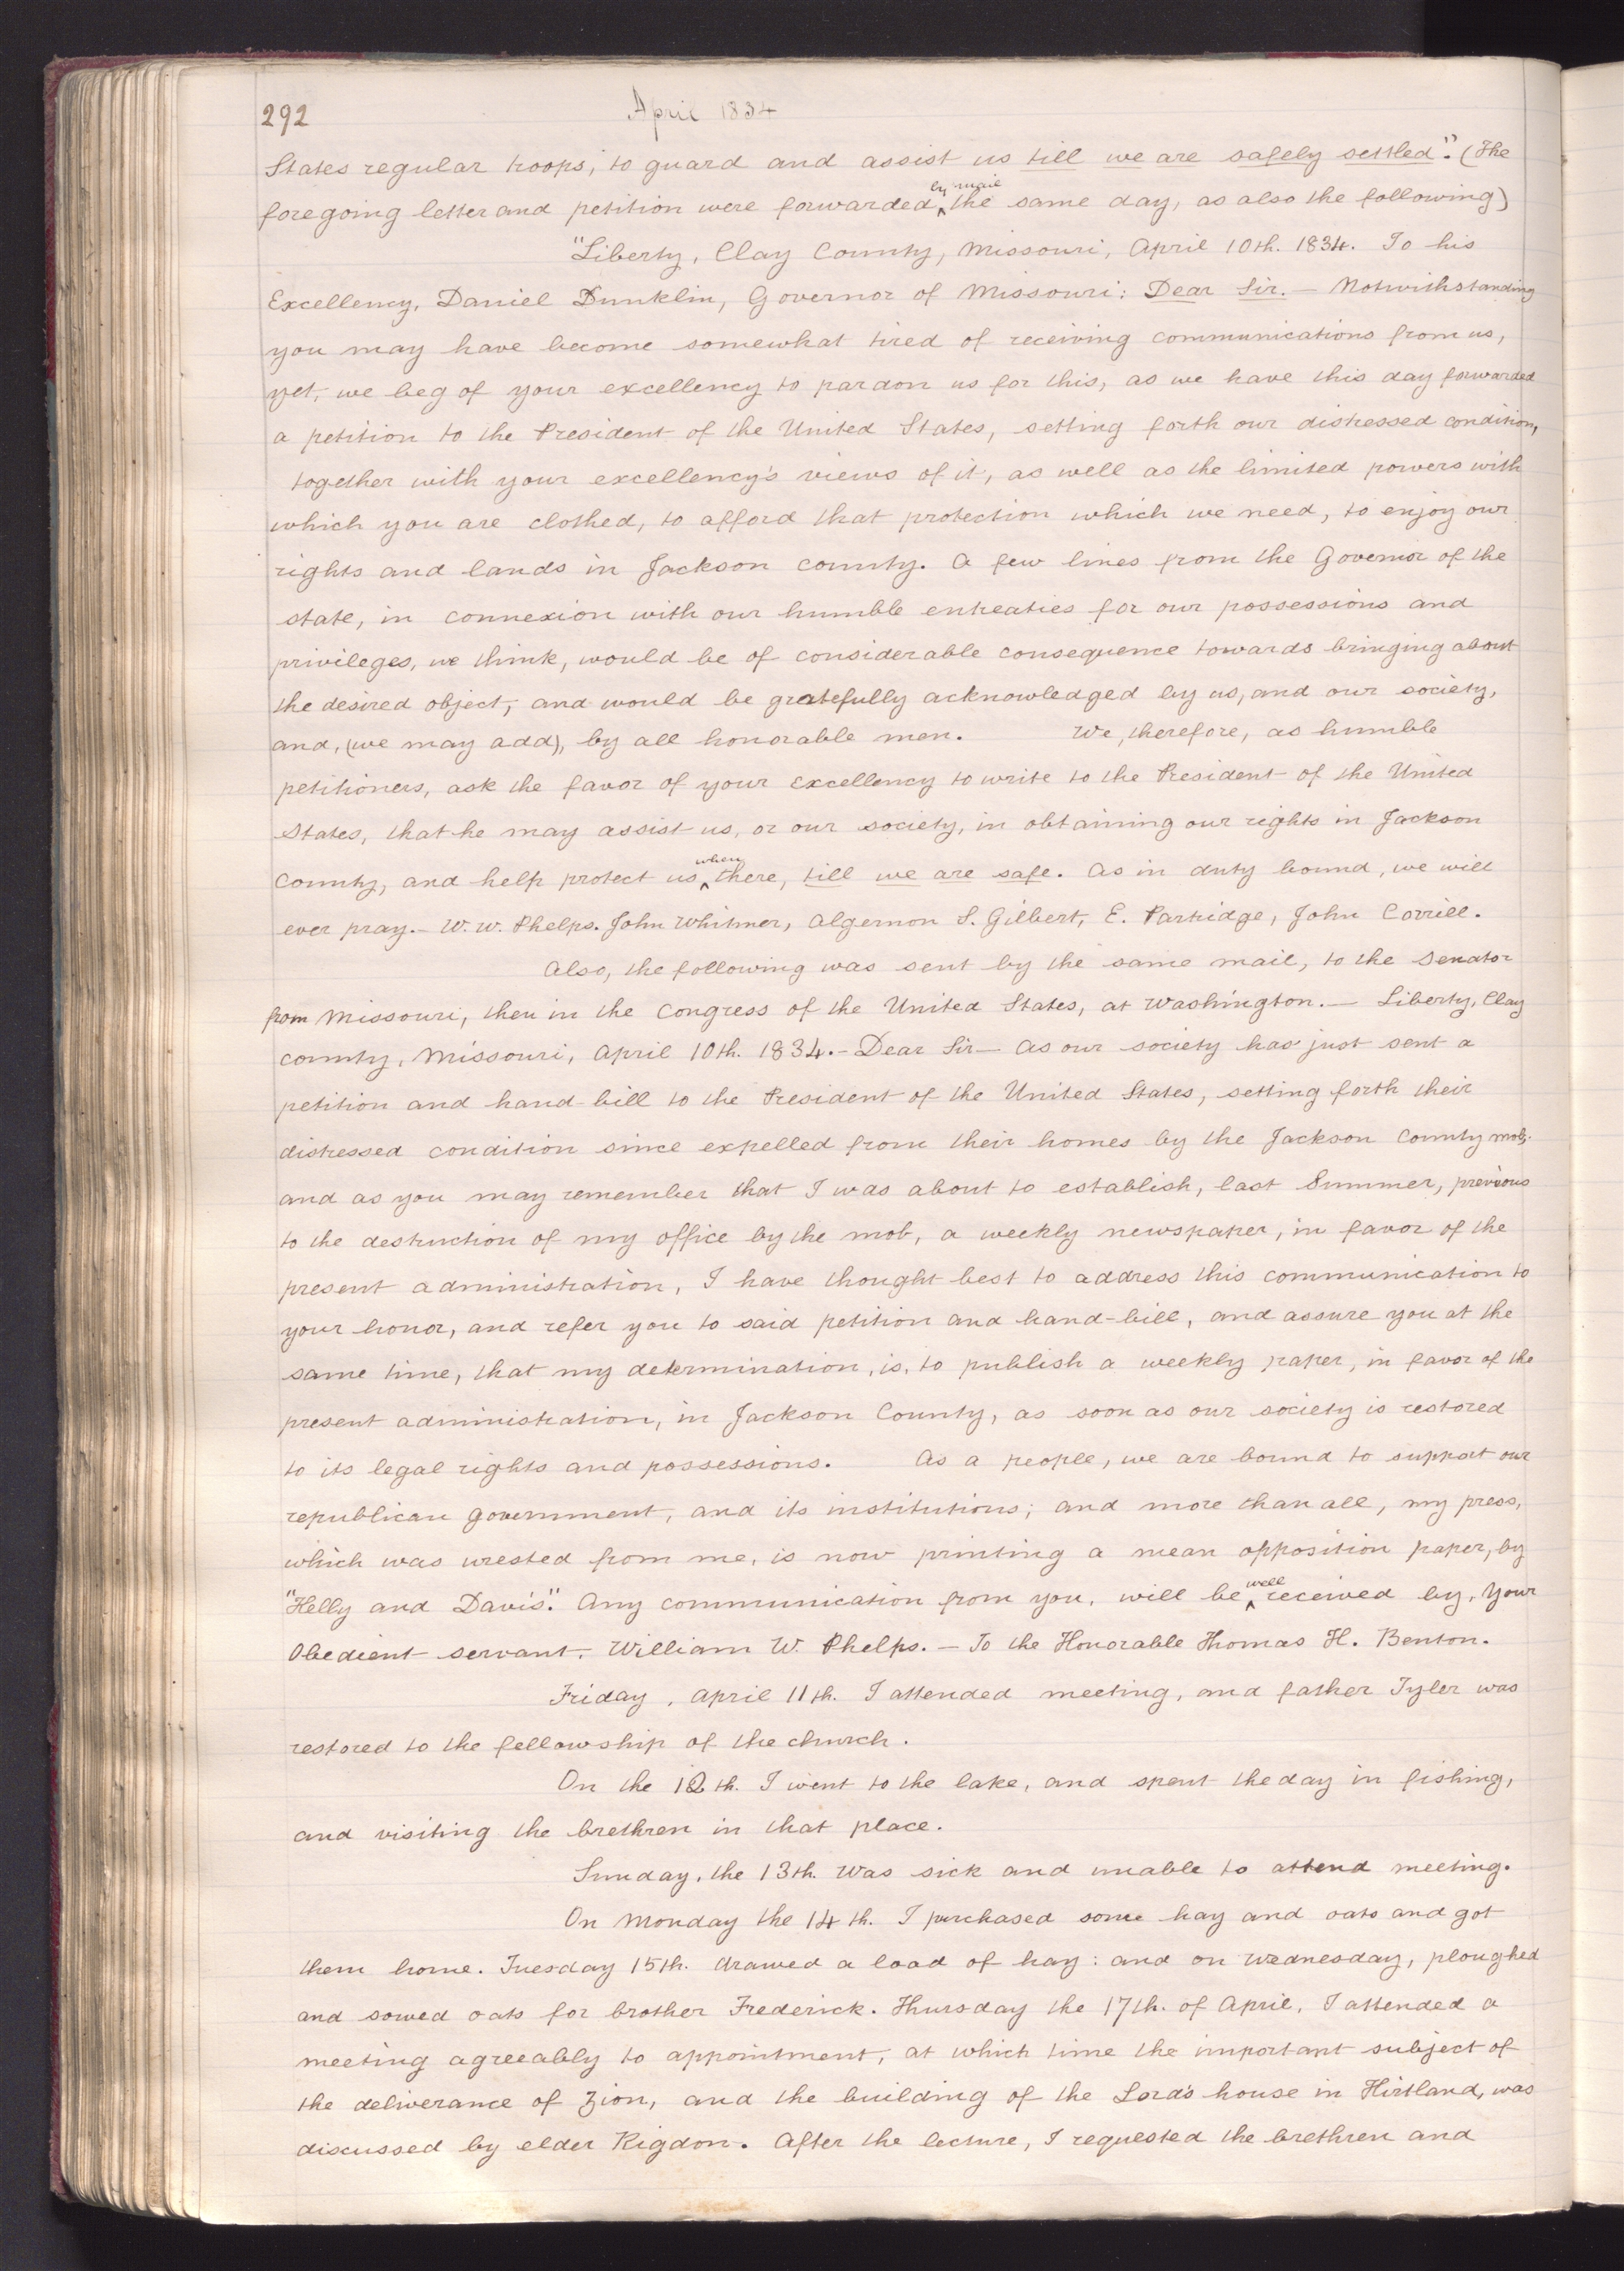 292
April 1834
States regular troops, to guard and assist us till we are safely settled." (The
by mail
foregoing letter and petition were forwarded ‸ the same day, as also the following)
"Liberty, Clay County, Missouri, April 10th. 1834. To his
Excellency, Daniel Dunklin, Governor of Missouri: Dear Sir. — Notwithstanding
you may have become somewhat tired of receiving communications from us,
yet, we beg of your excellency to pardon us for this, as we have this day forwarded
a petition to the President of the United States, setting forth our distressed condition,
together with your excellency's views of it, as well as the limited powers with
which you are clothed, to afford that protection which we need, to enjoy our
rights and lands in Jackson county. A few lines from the Governor of the
state, in connexion with our humble entreaties for our possessions and
privileges, we think, would be of considerable consequence towards bringing about
the desired object, and would be gratefully acknowledged by us, and our society,
and, (we may add), by all honorable men. We, therefore, as humble
petitioners, ask the favor of your excellency to write to the President of the United
States, that he may assist us, or our society, in obtaining our rights in Jackson
when
County, and help protect us ‸ there, till we are safe. As in duty bound, we will
ever pray.— W. W. Phelps. John Whitmer, Algernon S. Gilbert, E. Partridge, John Corrill.
Also, the following was sent by the same mail, to the Senator
from Missouri, then in the Congress of the United States, at Washington. — Liberty, Clay
county, Missouri, April 10th. 1834.— Dear Sir— As our society has just sent a
petition and hand-bill to the President of the United States, setting forth their
distressed condition since expelled from their homes by the Jackson County mob;
and as you may remember that I was about to establish, last Summer, previous
to the destruction of my office by the mob, a weekly newspaper, in favor of the
present administration, I have thought best to address this communication to
your honor, and refer you to said petition and hand-bill, and assure you at the
same time, that my determination, is, to publish a weekly paper, in favor of the
present administration, in Jackson County, as soon as our society is restored
to its legal rights and possessions. As a people, we are bound to support our
republican government, and its institutions; and more than all, my press,
which was wrested from me, is now printing a mean opposition paper, by
well
"Kelly and Davis." Any communication from you, will be ‸ received by, Your
Obedient servant, William W. Phelps. — To the Honorable Thomas H. Benton.
Friday, April 11th. I attended meeting, and father Tyler was
restored to the fellowship of the church.
On the 12th. I went to the lake, and spent the day in fishing,
and visiting the brethren in that place.
Sunday, the 13th. Was sick and unable to attend meeting.
On Monday the 14th. I purchased some hay and oats and got
them home. Tuesday 15th. drawed a load of hay: and on Wednesday, ploughed
and sowed oats for brother Frederick. Thursday the 17th. of April, I attended a
meeting agreeably to appointment, at which time the important subject of
the deliverance of Zion, and the building of the Lord's house in Kirtland, was
discussed by elder Rigdon. After the lecture, I requested the brethren and